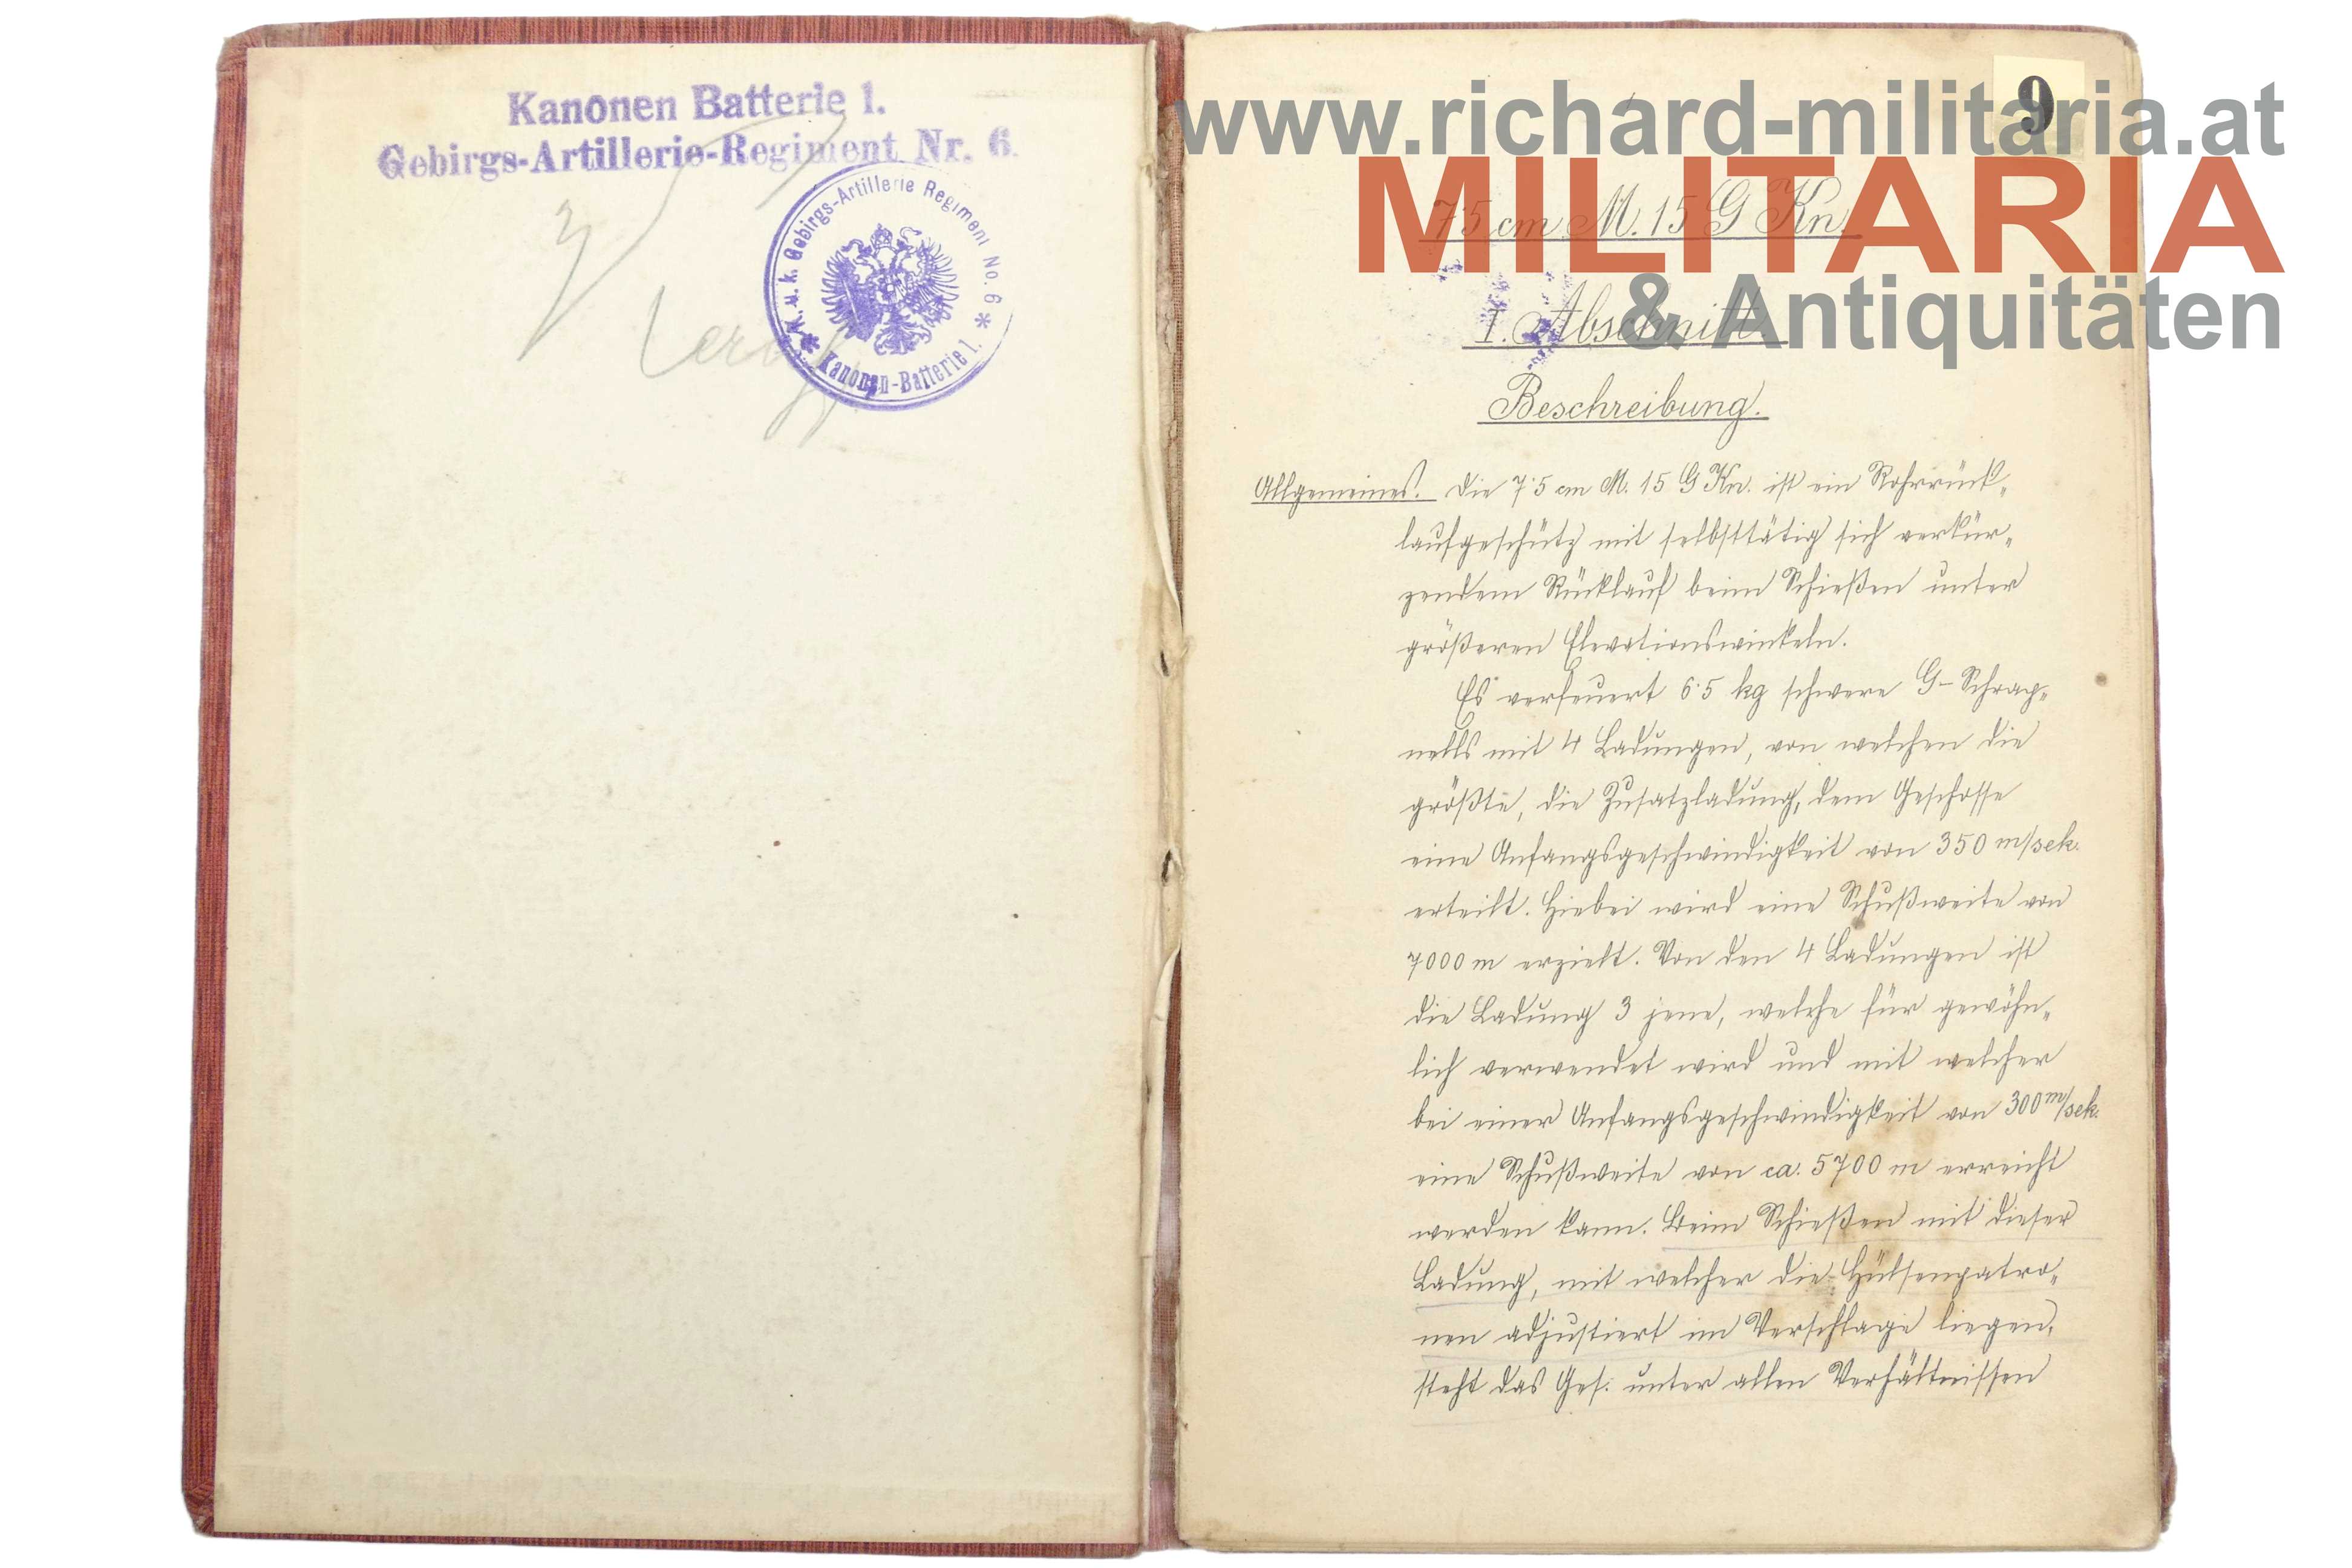 Kanonen Batterie 1.
Gebirgs-Artillerie-Regiment Nr. 6.
K. u. k. Gebirgs-Artillerie Regiment No. 6
Kanonen-Batterie 1.
9
www.richard-militaria.at
MILITARIA
& Antiquitäten
7·5 cm M. 15 G Kn.
I. Abschnitt
Beschreibung.
Allgemeines. Die 7·5 cm M. 15 G Kn. ist ein Rohrrück-
laufgeschütz mit selbsttätig sich verkür-
zendem Rücklauf beim Schießen unter
größeren Elevationswinkeln.
Es verfeuert 6·5 kg schwere G-Schrap-
nells mit 4 Ladungen, von welchen die
größte, die Zusatzladung, dem Geschosse
eine Anfangsgeschwindigkeit von 350 m/sek.
erteilt. Hiebei wird eine Schußweite von
7000 m erzielt. Von den 4 Ladungen ist
die Ladung 3 jene, welche für gewöhn-
lich verwendet wird und mit welcher
bei einer Anfangsgeschwindigkeit von 300 m/sek.
eine Schußweite von ca. 5700 m erreicht
werden kann. Beim Schießen mit dieser
Ladung, mit welcher die Hülsenpatro-
nen adjustiert im Verschlage liegen,
steht das Ges. unter allen Verhältnissen